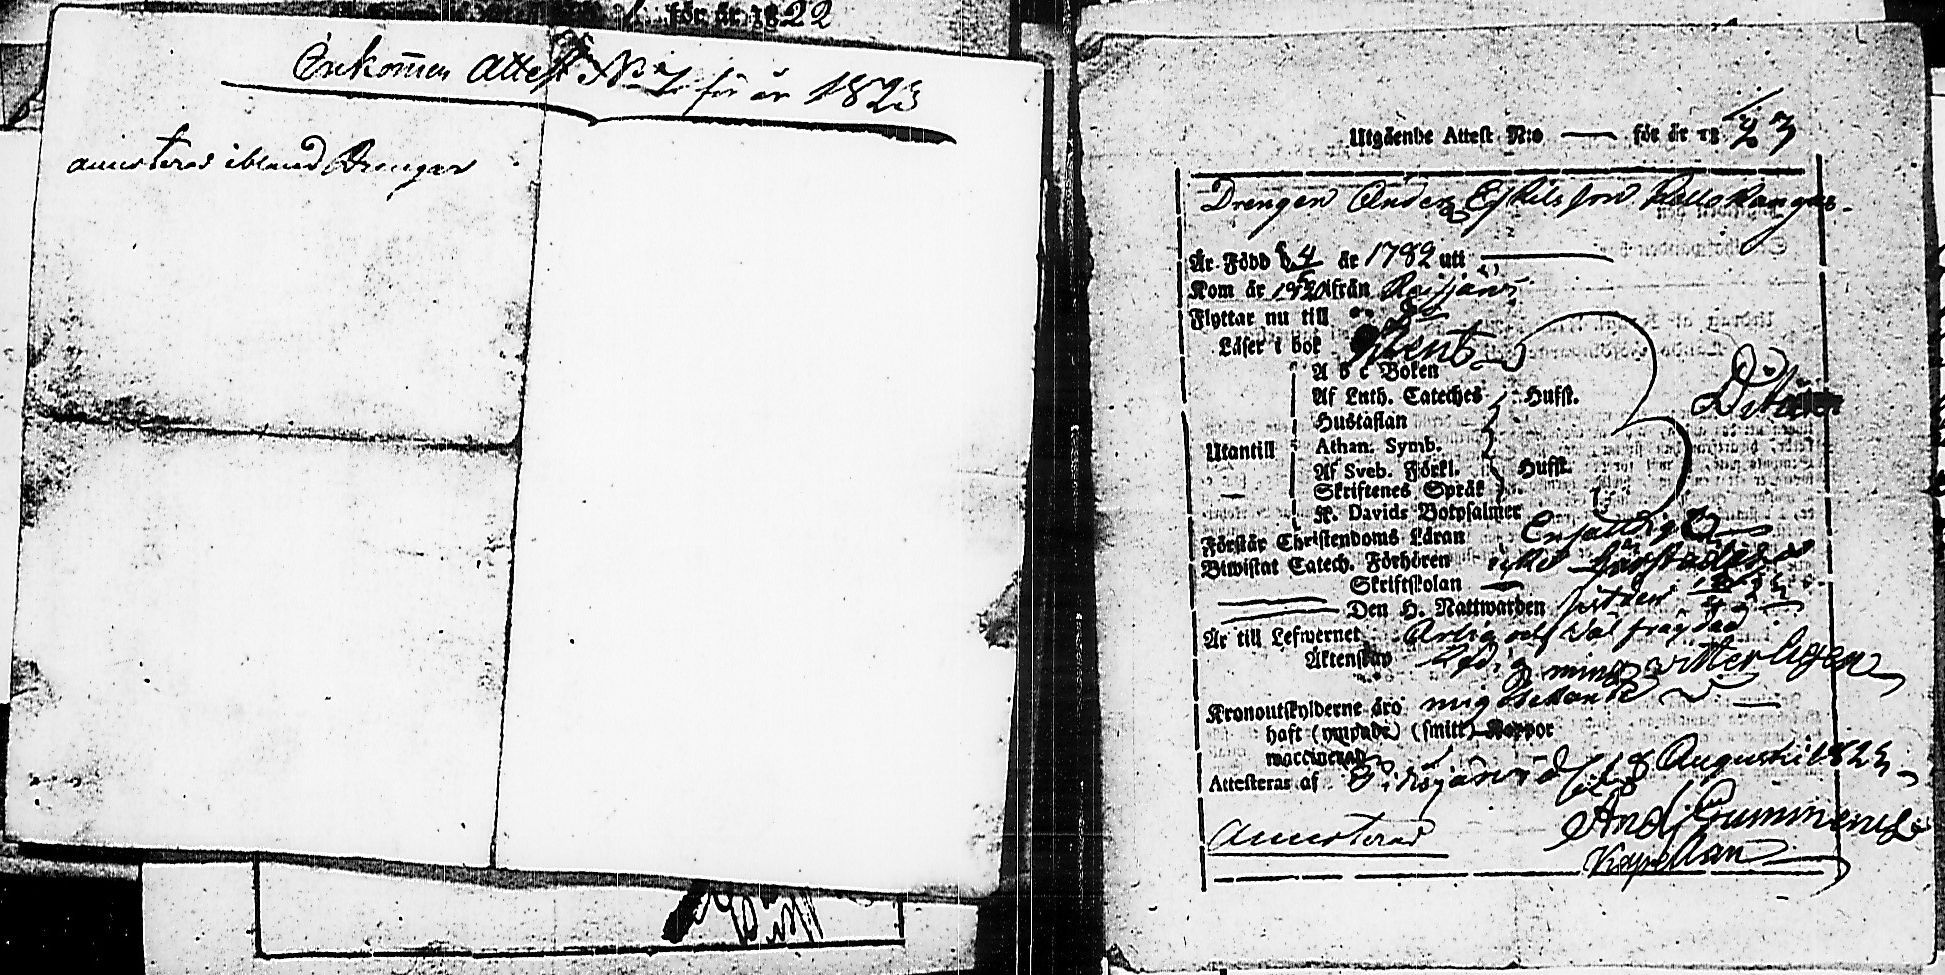 för år 1822
Inkommen Attest No 7 för år 1823
annoterad ibland Drengar
Utgående Attest N:o — för år 1823
Drengen Anders Eskilsson Kallokangas
Är Född d. 4 år 1782 utt
Kom år 1820 ifrån Reisjärvi
Flyttar nu till
Läser i bok
A b c Boken
Af Luth. Cateches Hufst.
Hustaflan
Utantill Athan. Symb.
Af Sveb. Förkl. Hufst.
Skriftenes Språk
K. Davids Botpsalmer
Förstår Christendoms Läran Enfaldigt
Biwistat Catech. Förhören
Skriftskolan
Den H. Nattwarden sist den
Är till Lefwernet Ärlig och väl frägdad
Äktenskap Ledig mina vitterligen
Kronoutskylderne äro mig obekant
haft (ympade) (smitt) Koppor
waccinerad
Attesteras af Pihtisjärvi d. 18 Augusti 1823
Annoterad And. Gummerus
Kapellan